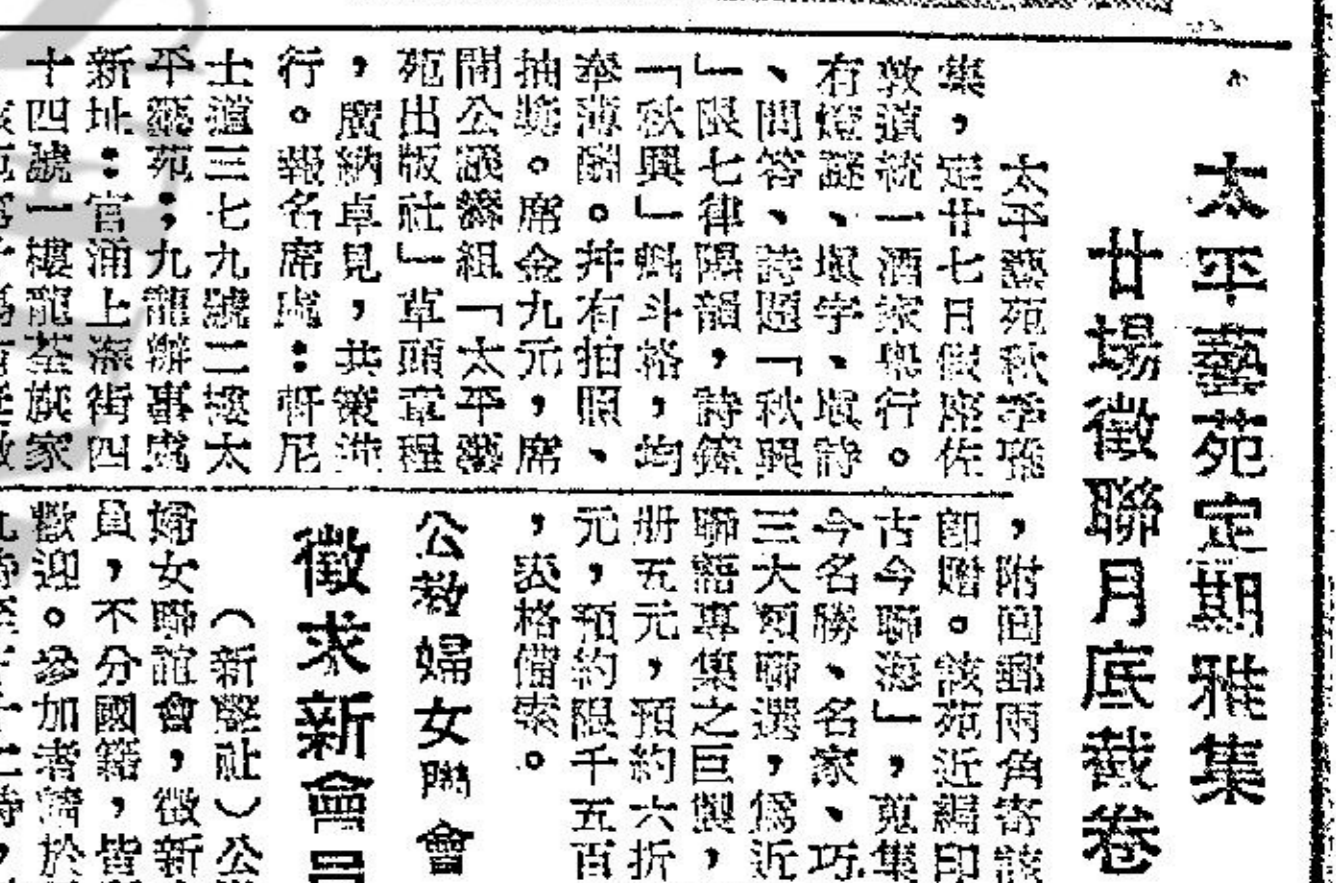 太平藝苑定期雅集
廿場徵聯月底截卷
太平藝苑秋季雅
集，定廿七日假座佐
敦道統一酒家舉行。
有燈謎、嵌字、嵌詩
、問答、詩題「秋興
」限七律陽韻，詩鐘
「秋興」魁斗格，均
奉薄酬。幷有拍照、
抽獎。席金九元，席
間公議籌組「太平藝
苑出版社」草頭章程
，廣納卓見，共策進
行。報名席處：軒尼
士道三七九號二樓太
平藝苑；九龍辦事處
新址：官涌上海街四
十四號一樓龍荃旅家
，附回郵兩角寄該
卽贈。該苑近編印
古今聯海」，蒐集
今名勝、名家、巧
三大類聯選，爲近
聯語專集之巨製，
册五元，預約六折，
元，預約限千五百
，表格備索。
公教婦女聯會
徵求新會員
（新聲社）公
婦女聯誼會，徵新
員，不分國籍，皆
歡迎。參加者請於